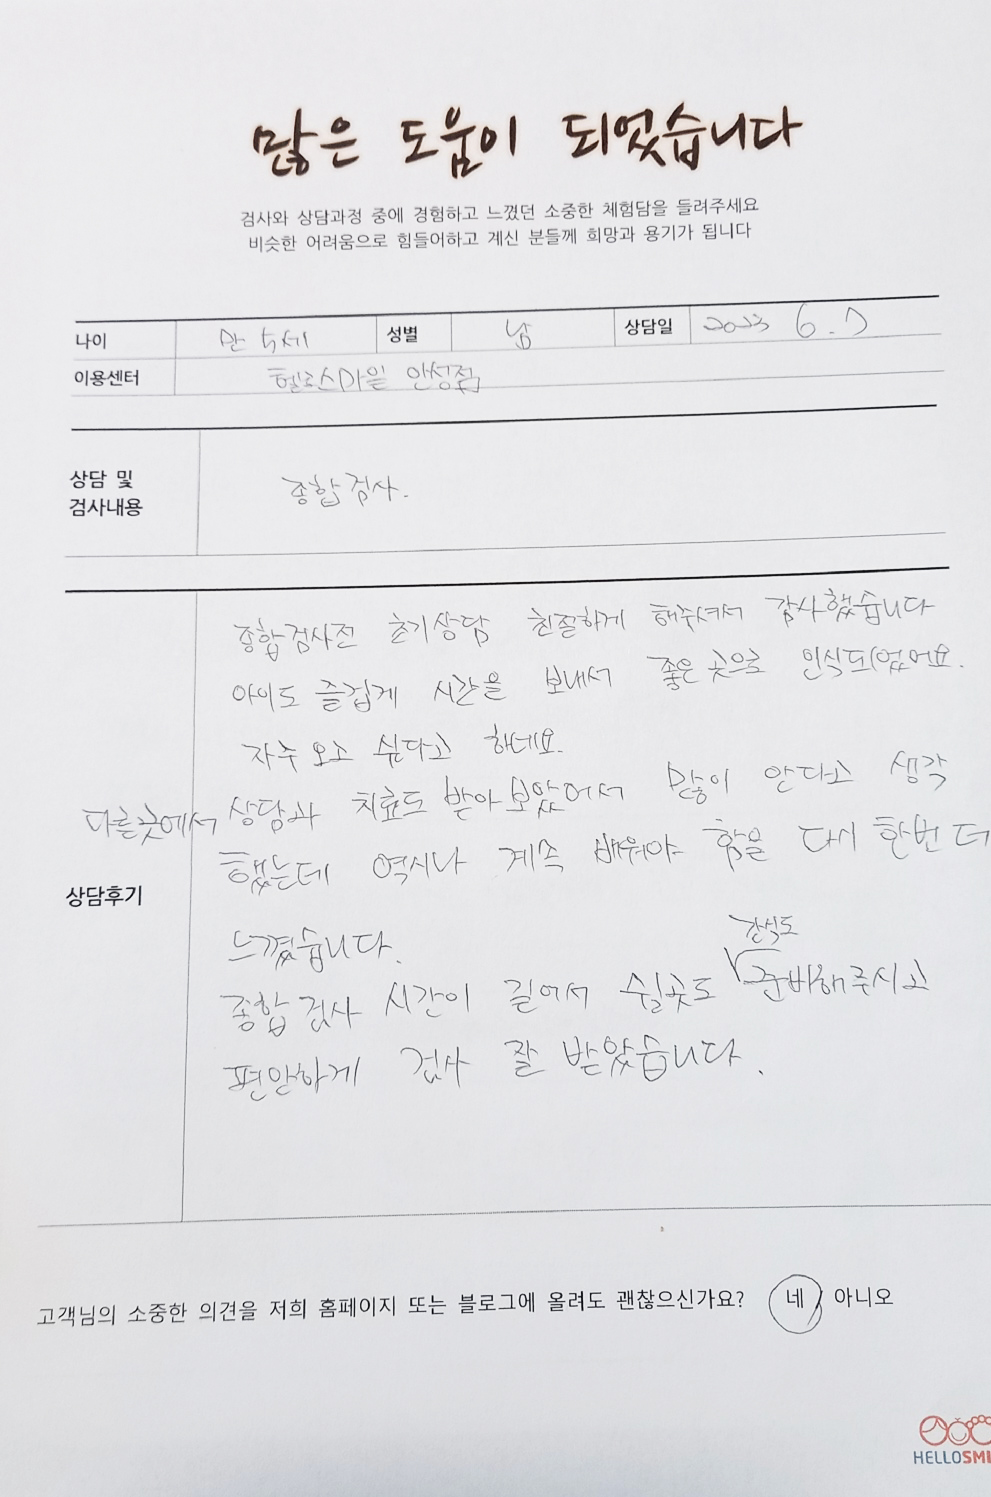 많은 도움이 되었습니다
검사와 상담과정 중에 경험하고 느꼈던 소중한 체험담을 들려주세요
비슷한 어려움으로 힘들어하고 계신 분들께 희망과 용기가 됩니다
나이 만 5세 성별 남 상담일 2023 6. 7
이용센터 헬로스마일 안성점
상담 및
검사내용
종합검사.
종합검사전 초기상담 친절하게 해주셔서 감사했습니다
아이도 즐겁게 시간을 보내서 좋은곳으로 인식되었어요.
자주 오고 싶다고 하네요.
다른곳에서 상담과 치료도 받아보았어서 많이 안다고 생각
했는데 역시나 계속 배워야 함을 다시 한번 더
상담후기
느꼈습니다.
간식도
종합검사 시간이 길어서 쉴곳도 준비해주시고
편안하게 검사 잘 받았습니다.
고객님의 소중한 의견을 저희 홈페이지 또는 블로그에 올려도 괜찮으신가요? 네 / 아니오
HELLOSMI